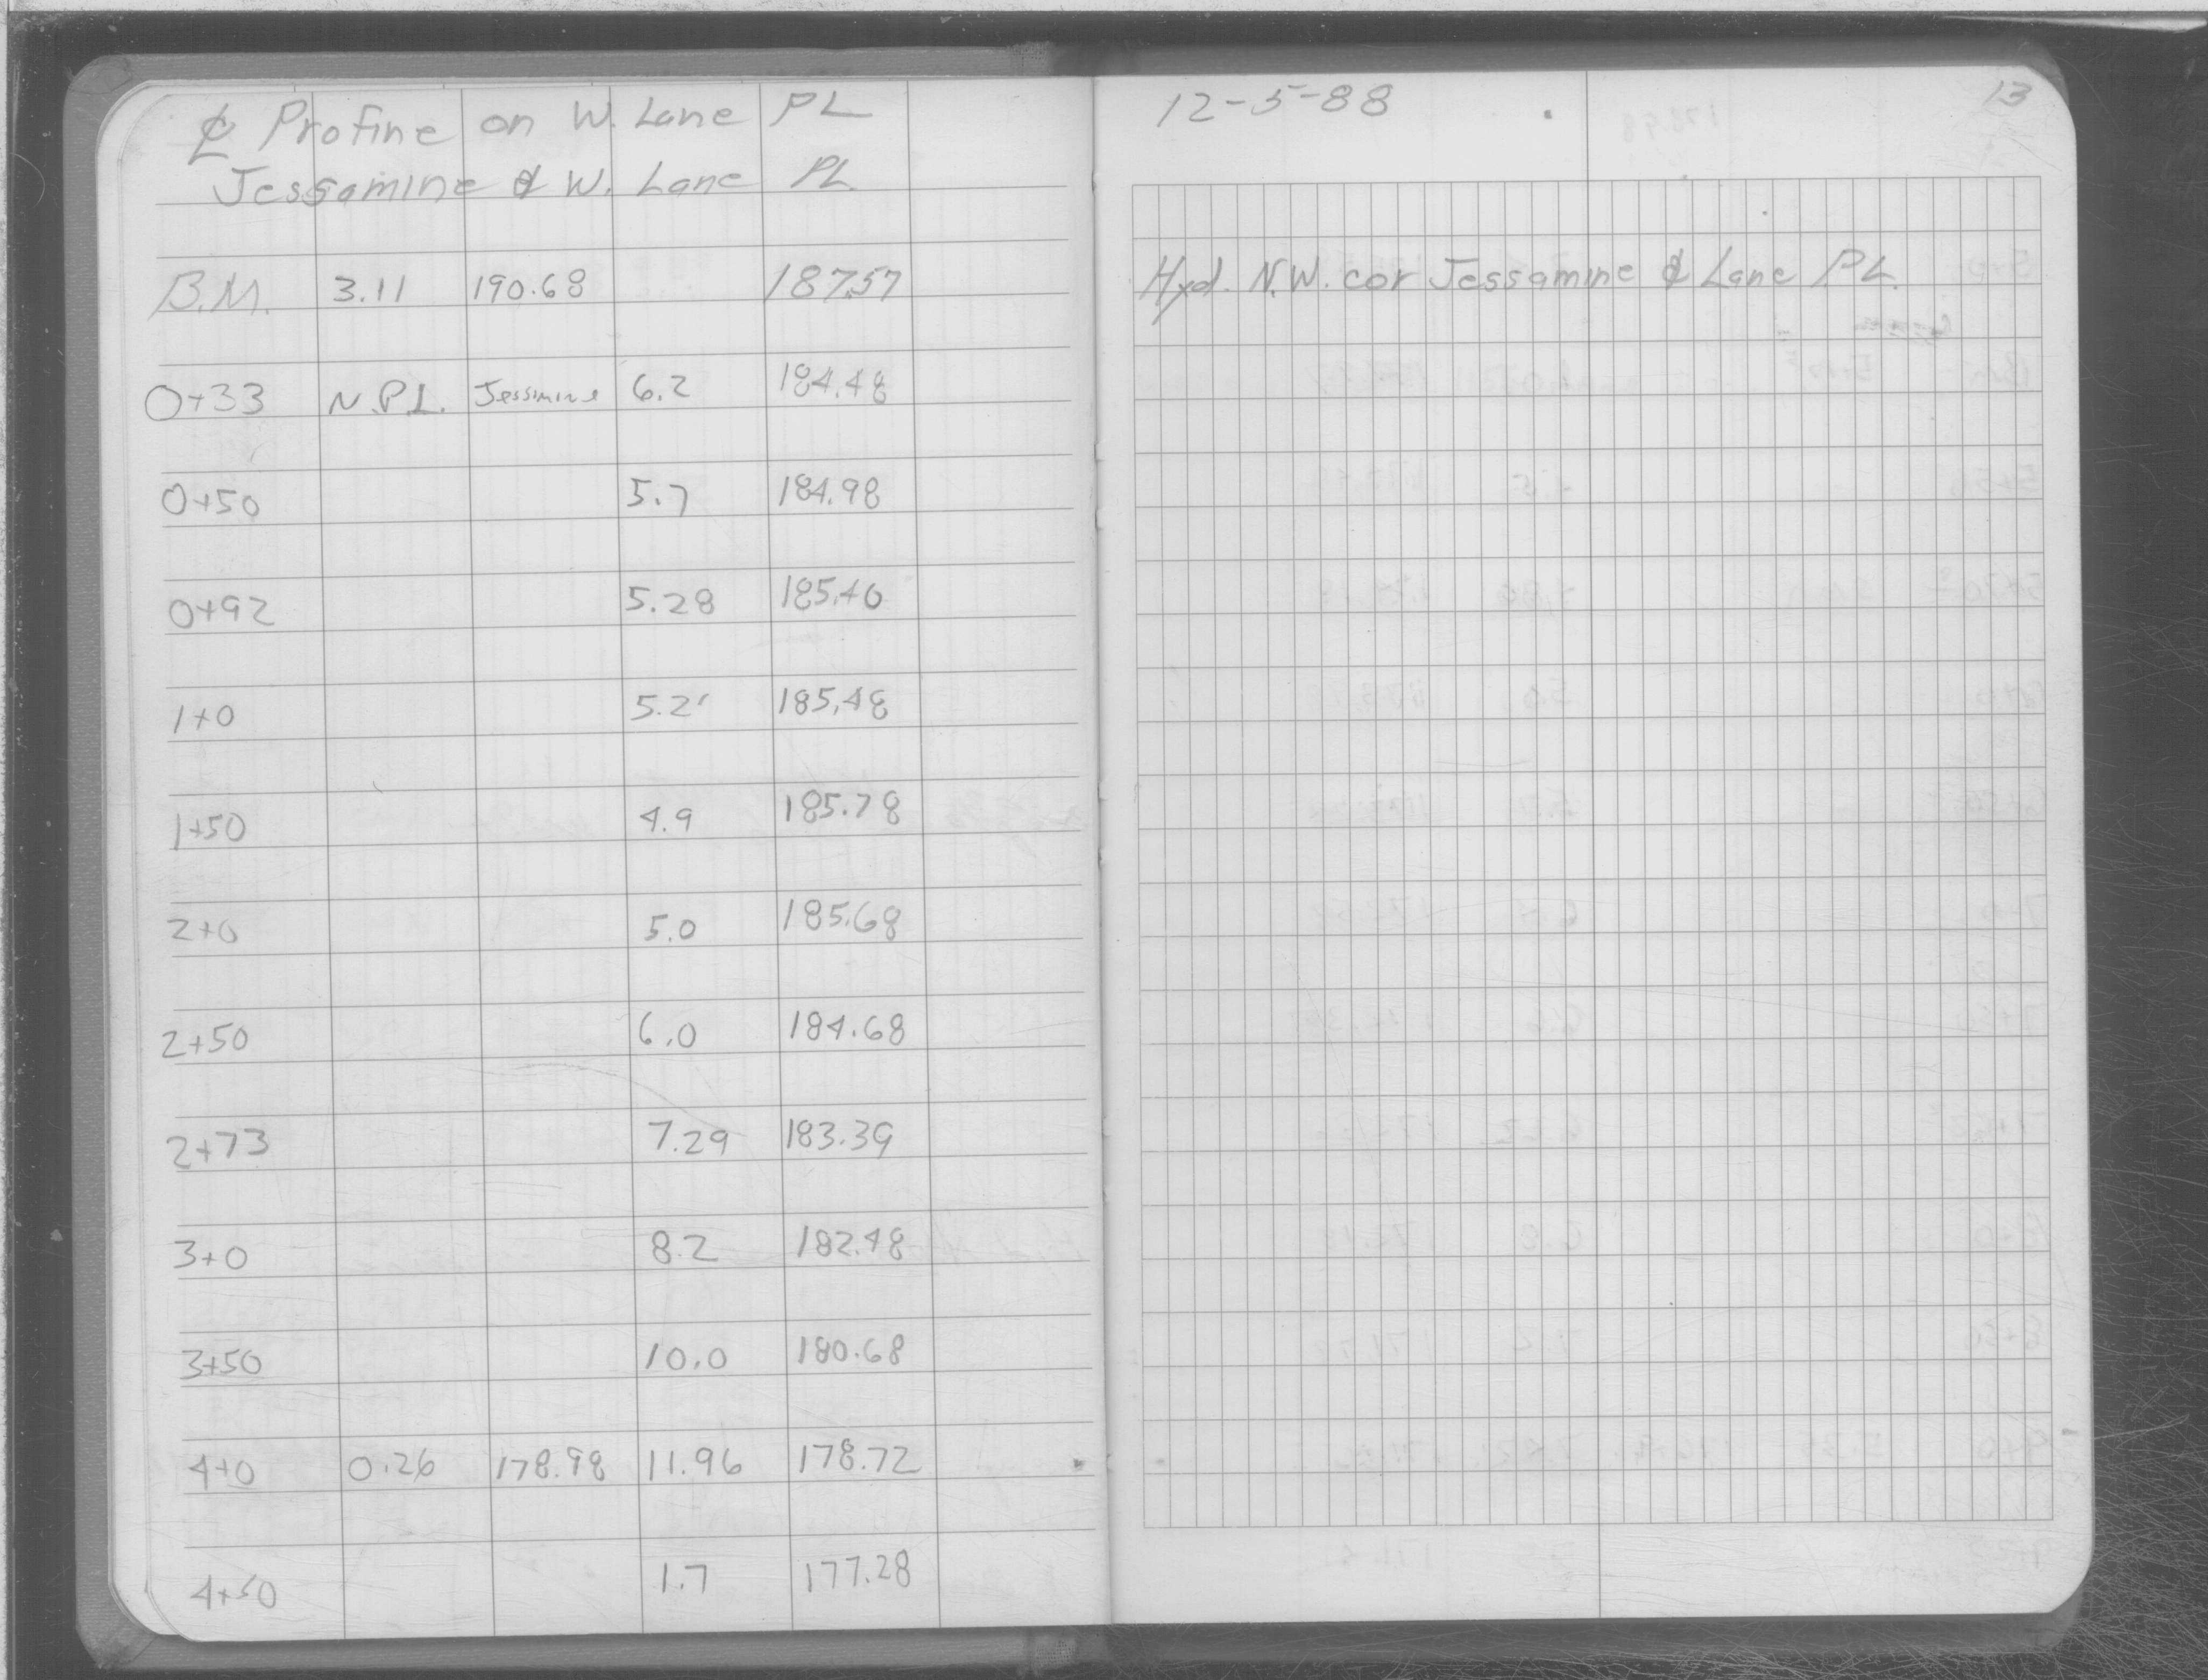 ℄ Profine on W. Lane PL
Jessamine & W. Lane PL
B.M. 3.11 190.68 187.57
0+33 N.P.L. Jessimine 6.2 184.48
0+50 5.7 184.98
0+92 5.28 185.40
1+0 5.2' 185.48
1+50 4.9 185.78
2+0 5.0 185.68
2+50 6.0 184.68
2+73 7.29 183.39
3+0 8.2 182.48
3+50 10.0 180.68
4+0 0.26 178.98 11.96 178.72
4+50 1.7 177.28
12-5-88 13
Hyd. N.W. cor Jessamine & Lane PL.